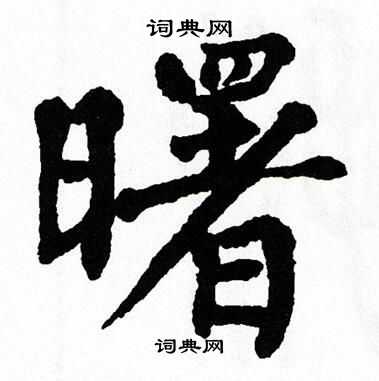 词典网
曙
词典网